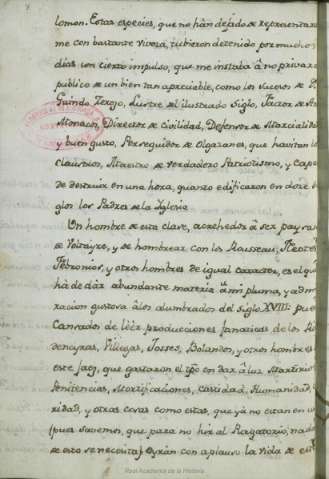 lomon. Estas especies, que no hán dejado de representarse
me con bastante viveza, tubieron detenido por muchos
dias un cierto impulso, que me instaba â no privar al
publico de un bien tan apreciable, como los sucesos de D.
Guindo Zerezo, Lustre del ilustrado Siglo, Factor de
Director de Civilidad, Defensor de Marcialidad
y buen gusto, Perseguidor de Olgazanes, que havitan los
claustros, Maestro de verdadero Patriotismo, y capaz
de destruir en una hora, quanto edificaron en doze si
glos los Padres de la Yglesia
Un hombre de esta clave, acrehedor â ser
de Voltayre, y de hombrear con los Rousseau,
Febronios, y otros hombres de igual caracter, es el que
há de dár abundante materia â mi pluma, y admi
racion gustosa âlos alumbrados del siglo XVIII: pues
Cansados de léer producciones fanaticas de los
deneyras, Villegas, Bolandos, y otros hombres de
este jaez, que gastaron el tpô en dar â luz Martirios
Penitencias, Mortificaciones, castidad, Humanidad,
ridad, y otras cosas como estas, que yá no estan en uso
(pues savemos, que para no hir al Purgatorio, nada
de esto se necesita) oyrán con aplauso la vida de este
Real Academia de la Historia